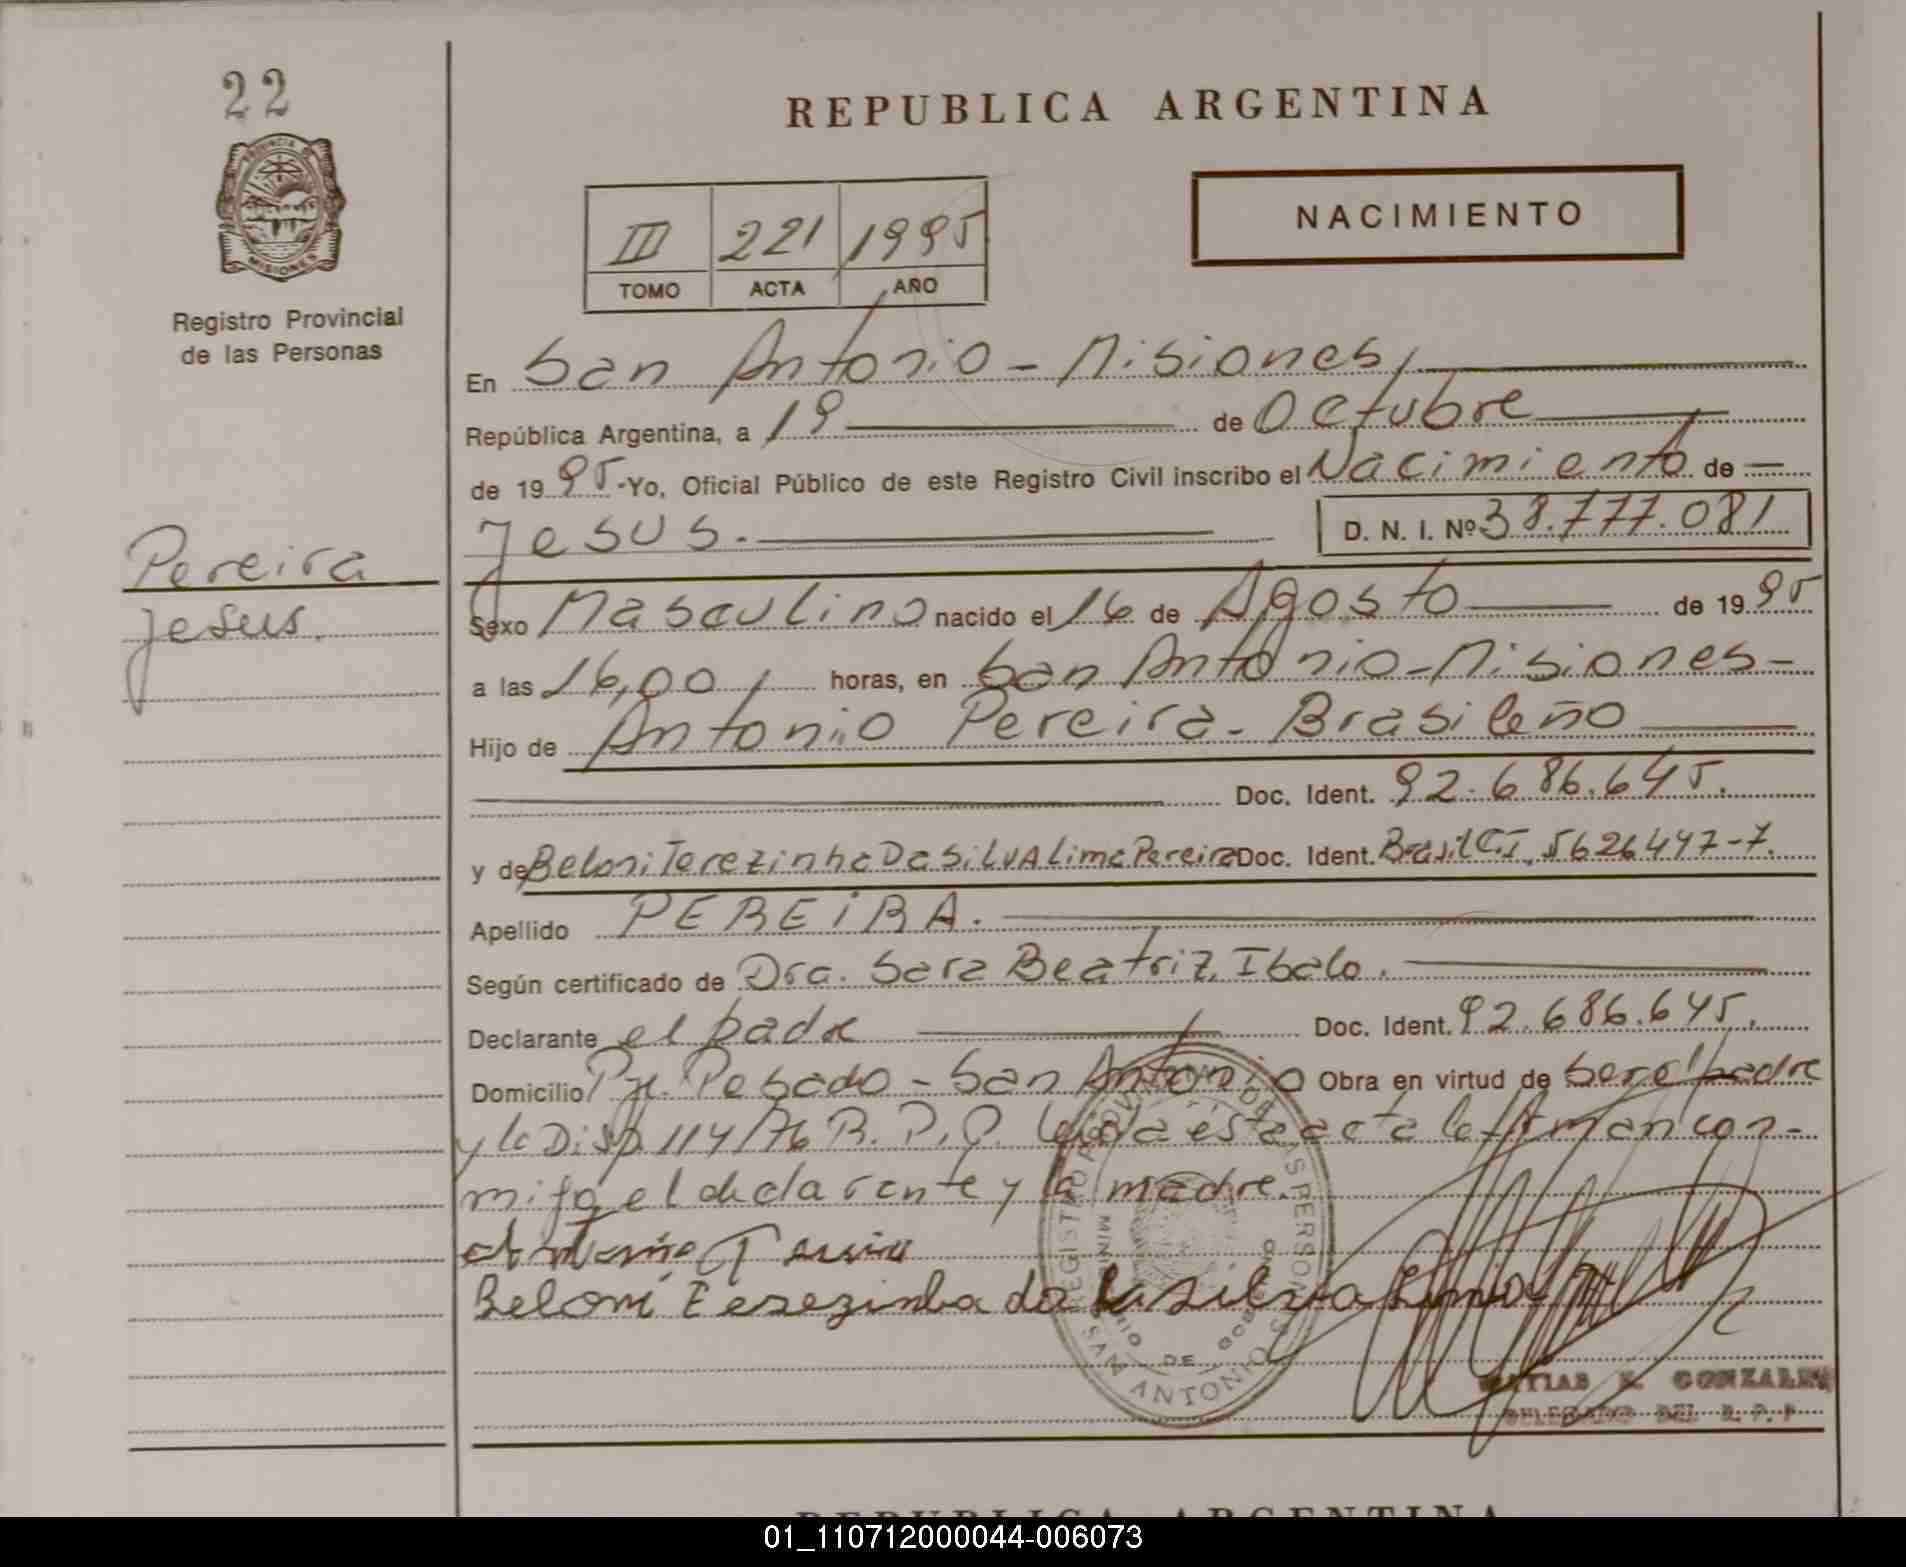 22
PROVINCIA DE
MISIONES
Registro Provincial
de las Personas
REPUBLICA ARGENTINA
NACIMIENTO
III 221 1995
TOMO ACTA AÑO
En San Antonio - Misiones,
República Argentina, a 19 de Octubre
de 1995 - Yo, Oficial Público de este Registro Civil inscribo el Nacimiento de
Jesus. D. N. I. Nº 38.777.081
Pereira
Jesus.
Sexo Masculino nacido el 16 de Agosto de 1995
a las 16,00, horas, en San Antonio - Misiones -
Hijo de Antonio Pereira - Brasileño
Doc. Ident. 92.686.645.
y de Beloni Terezinha Da Silva Lima Pereira Doc. Ident. Brasil C.I. 5626447-7.
Apellido PEREIRA.
Según certificado de Dra. Sara Beatriz Ibalo.
Declarante el padre Doc. Ident. 92.686.645.
Domicilio Pje. Pesado - San Antonio Obra en virtud de ser el padre
y la Disp. 114/76 R.P.P. Leída ésta acta la firman con-
migo el declarante y la madre.
Beloni Terezinha da silva lima
REGISTRO PROVINCIAL DE LAS PERSONAS
MINISTERIO DE GOBIERNO
SAN ANTONIO
MATIAS R. GONZALEZ
DELEGADO DEL R.P.P.
REPUBLICA ARGENTINA
01_110712000044-006073